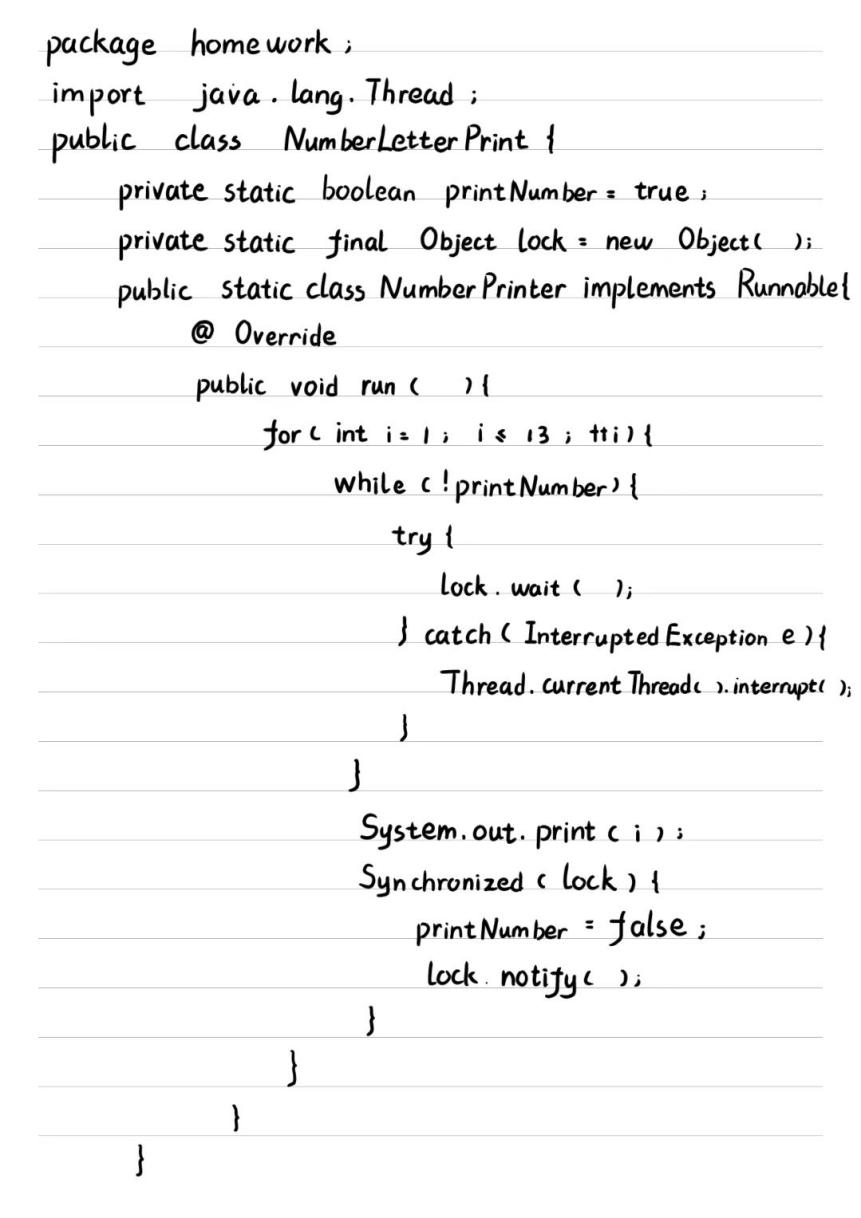 package homework;
import java.lang.Thread;
public class NumberLetterPrint {
private static boolean printNumber = true;
private static final Object lock = new Object( );
public static class NumberPrinter implements Runnable{
@ Override
public void run ( ){
for( int i = 1; i ≤ 13 ; ++i) {
while (!printNumber) {
try {
lock.wait ( );
} catch ( Interrupted Exception e ){
Thread.currentThread( ).interrupt( );
}
}
System.out.print ( i );
Synchronized ( lock ) {
printNumber = false ;
lock.notify( );
}
}
}
}